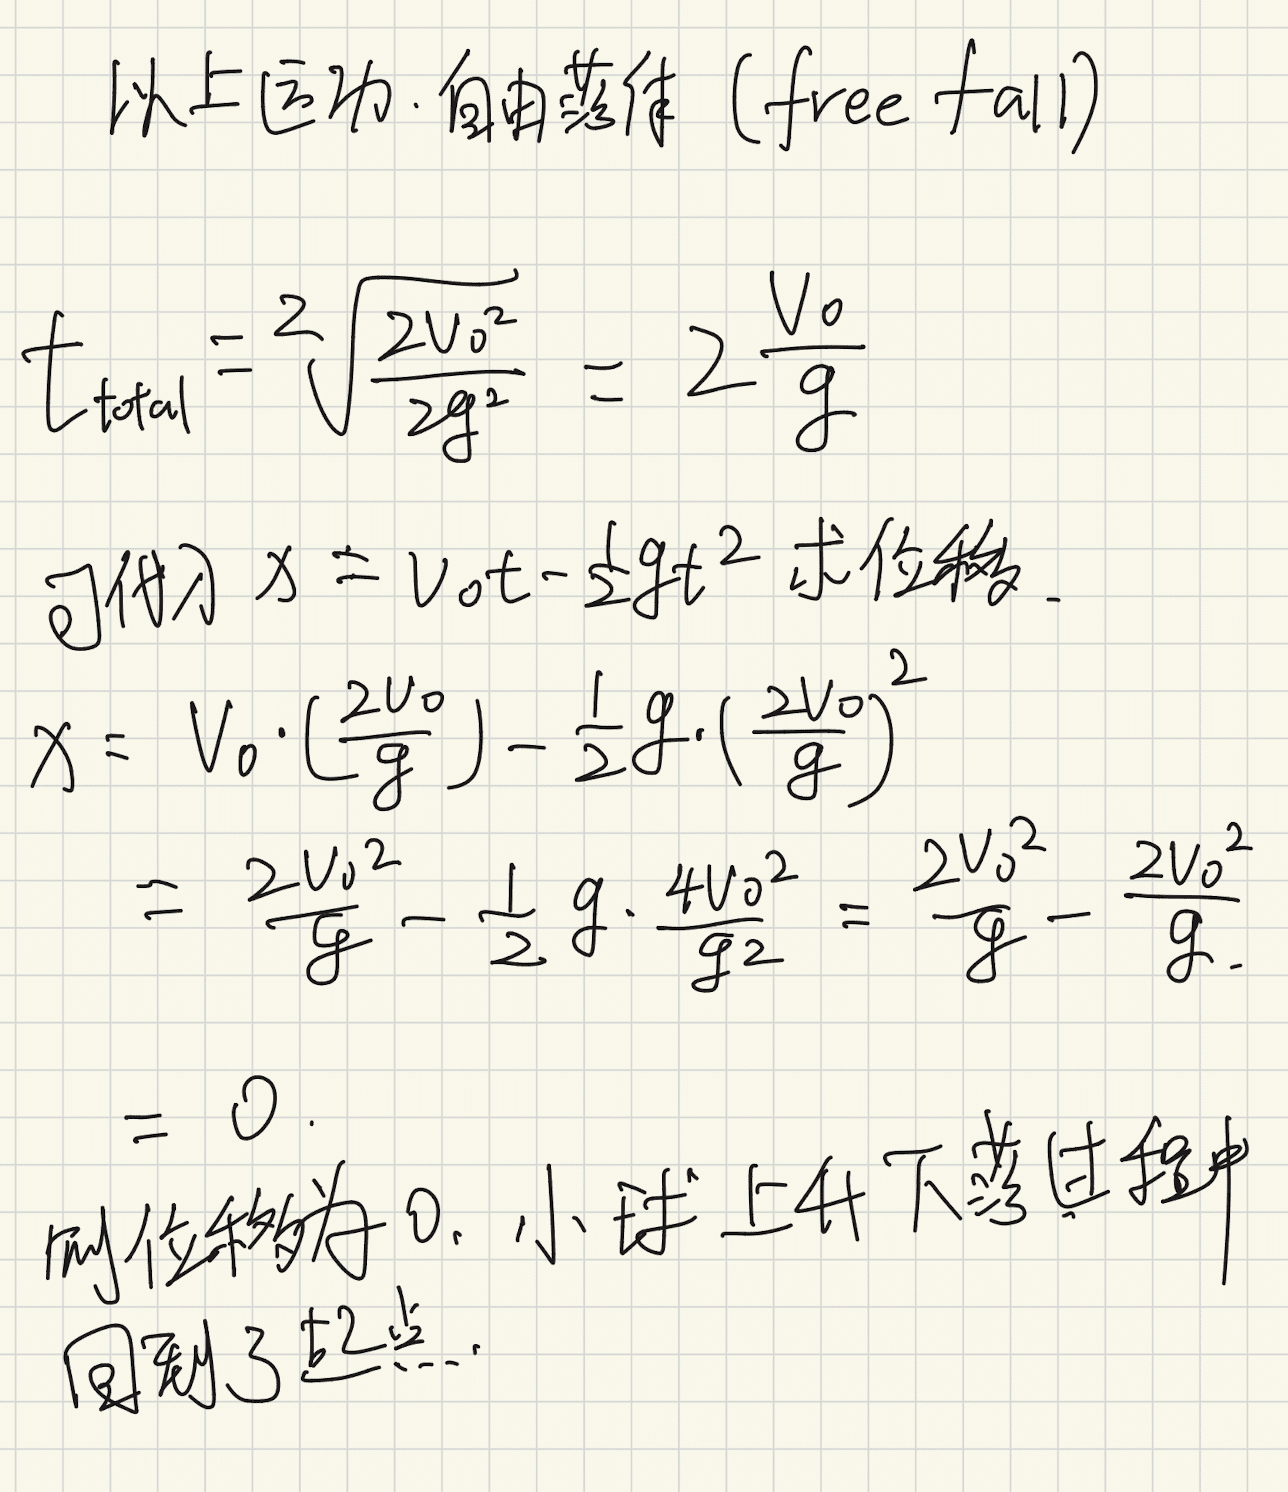 以上运动.自由落体 (free fall)
t_total = 2√(2V₀²/2g²) = 2 V₀/g
可代入 x = V₀t - ½gt² 求位移.
x = V₀·(2V₀/g) - ½g·(2V₀/g)²
= 2V₀²/g - ½ g·4V₀²/g² = 2V₀²/g - 2V₀²/g.
= 0.
则位移为0. 小球上升下落过程中
回到了起点.